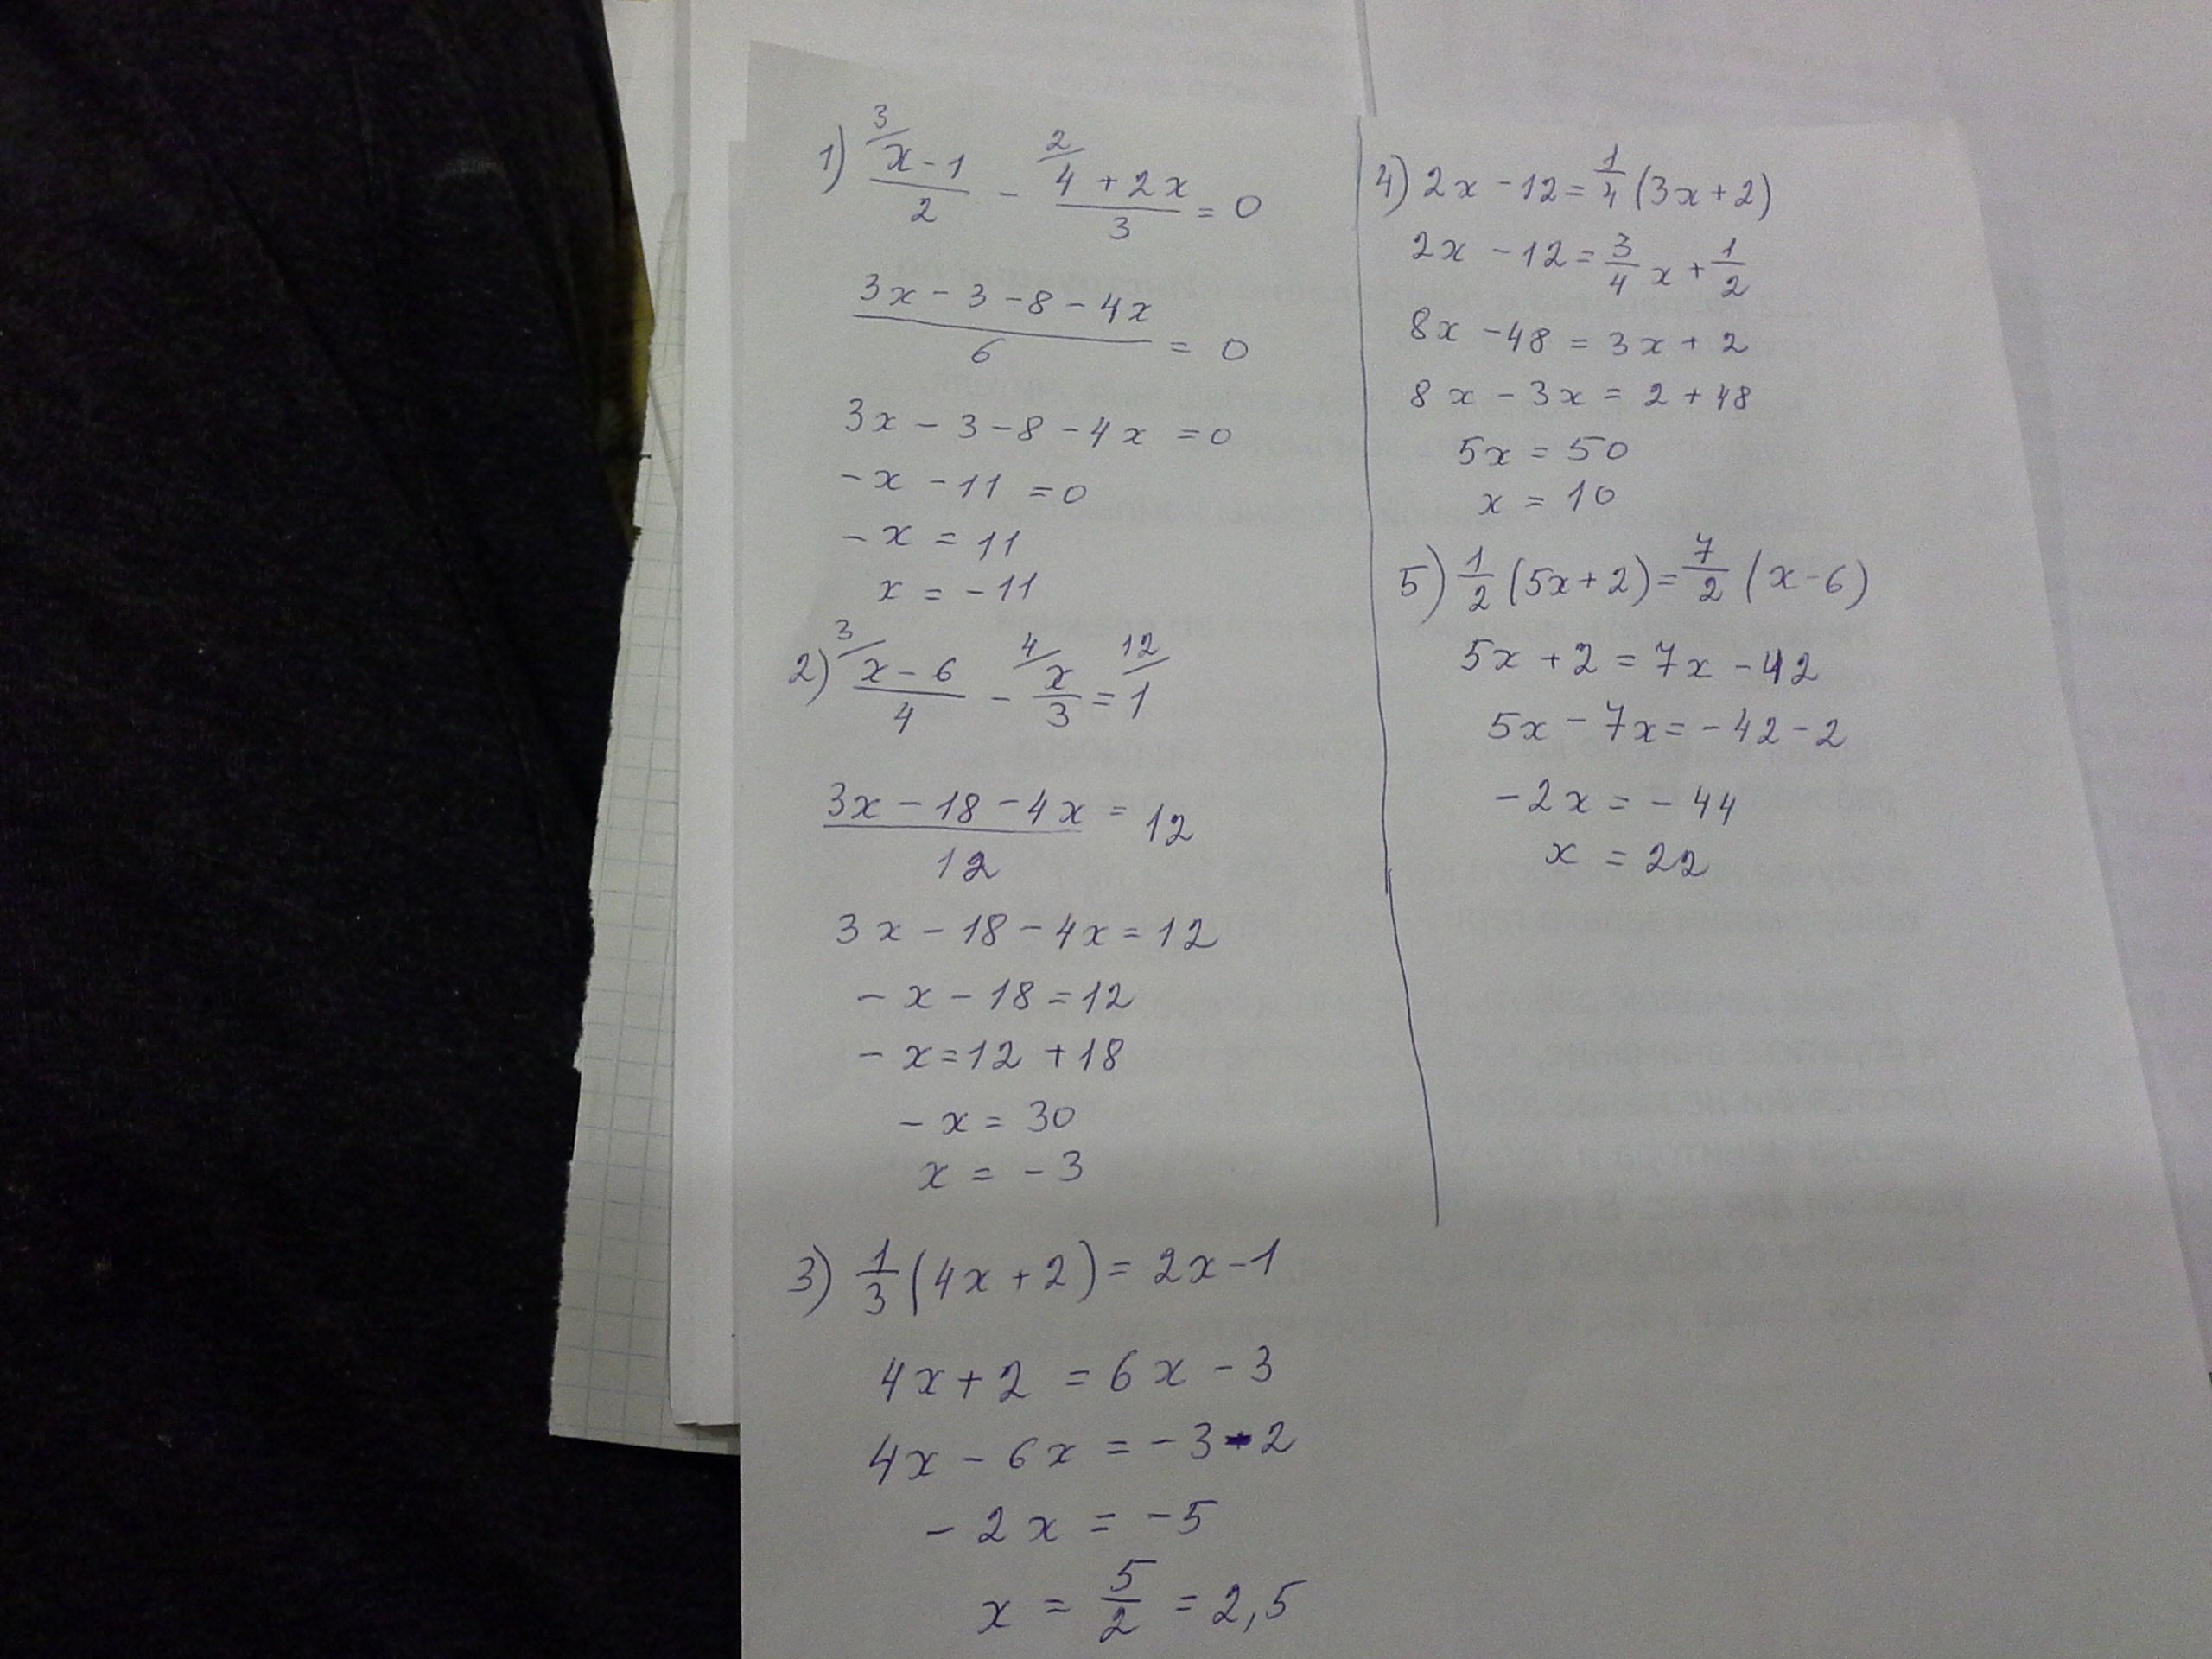 1) 3/ (x - 1)/2 - 2/ (4 + 2x)/3 = 0
(3x - 3 - 8 - 4x)/6 = 0
3x - 3 - 8 - 4x = 0
- x - 11 = 0
- x = 11
x = - 11
2) 3/ (x - 6)/4 - 4/ x/3 = 12/ 1
(3x - 18 - 4x)/12 = 12
3x - 18 - 4x = 12
- x - 18 = 12
- x = 12 + 18
- x = 30
x = - 3
3) 1/3 (4x + 2) = 2x - 1
4x + 2 = 6x - 3
4x - 6x = - 3 - 2
- 2x = - 5
x = 5/2 = 2,5
4) 2x - 12 = 1/4 (3x + 2)
2x - 12 = 3/4 x + 1/2
8x - 48 = 3x + 2
8x - 3x = 2 + 48
5x = 50
x = 10
5) 1/2 (5x + 2) = 7/2 (x - 6)
5x + 2 = 7x - 42
5x - 7x = - 42 - 2
- 2x = - 44
x = 22